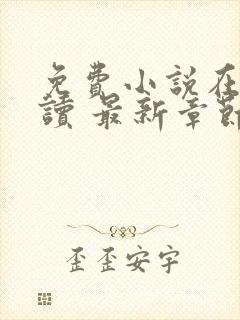 免費小說在
讀 最新章節
歪歪安宇